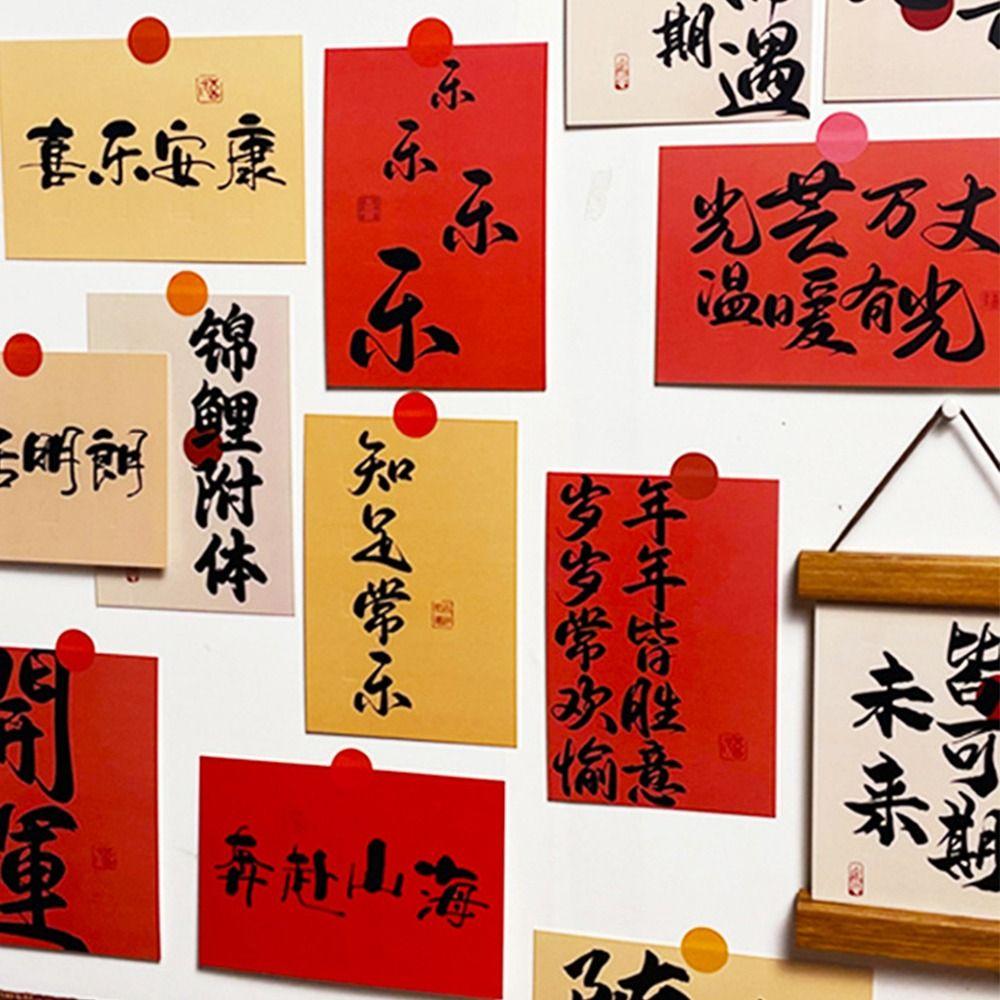 喜乐安康
乐
乐
乐
乐
期
遇
光芒万丈
温暖有光
锦鲤附体
明朗
知足常乐
年年皆胜意
岁岁常欢愉
開運
奔赴山海
皆可期
未来